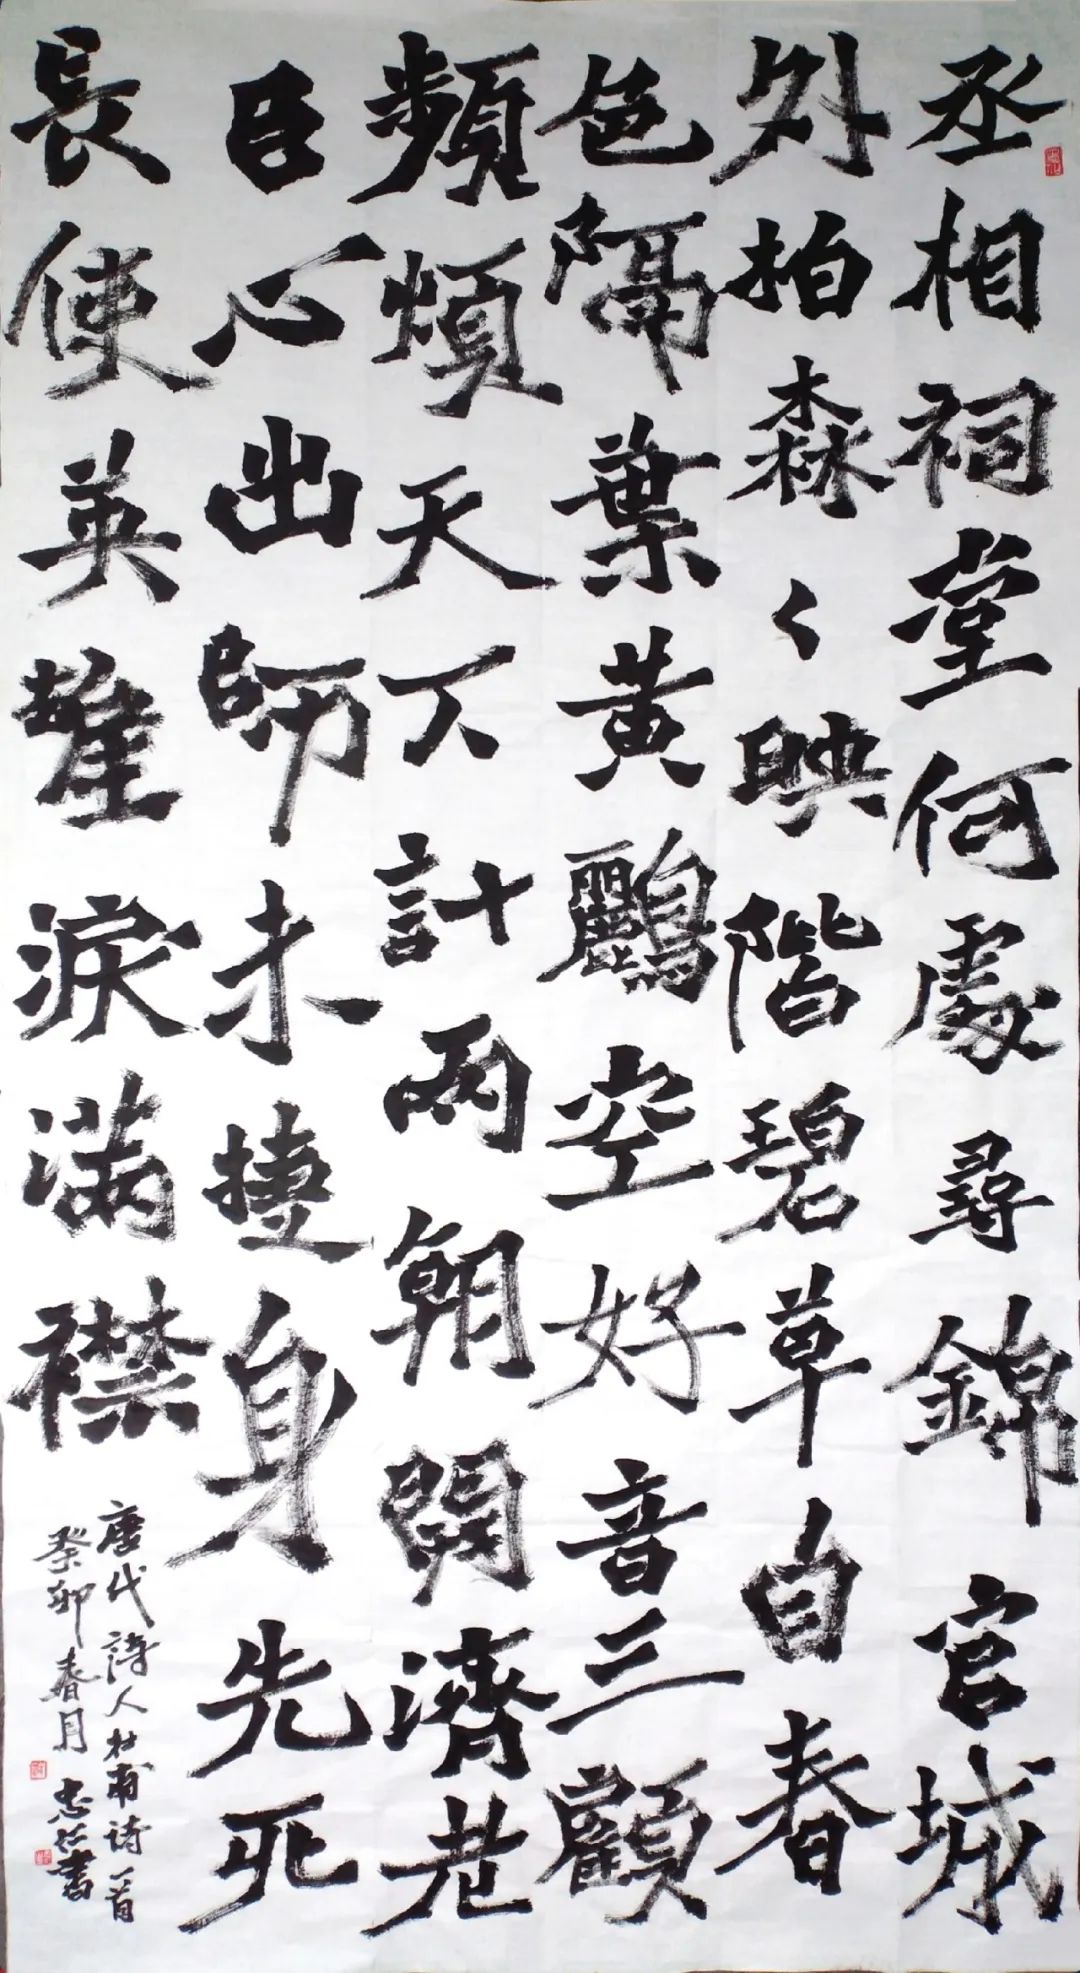 丞相祠堂何處尋錦官城
外柏森々映階碧草自春
色隔葉黄鸝空好音三顧
頻煩天下計兩朝開濟老
臣心出師未捷身先死
長使英雄淚满襟
唐代詩人杜甫诗一首
癸卯春月 書